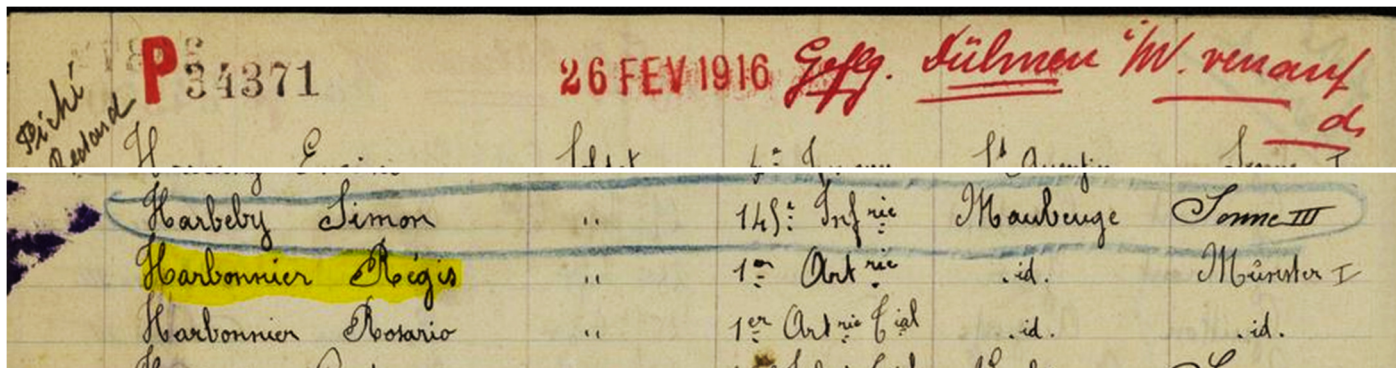 P 34371 26 FEV 1916 Gefg. Dülmen i/W. ven auf
d.
Harbeby Simon " 145e Inf rie Maubeuge Somme III
Harbonnier Régis " 1er Art rie id. Münster I
Harbonnier Rosario " 1er Art rie Tial id. id.